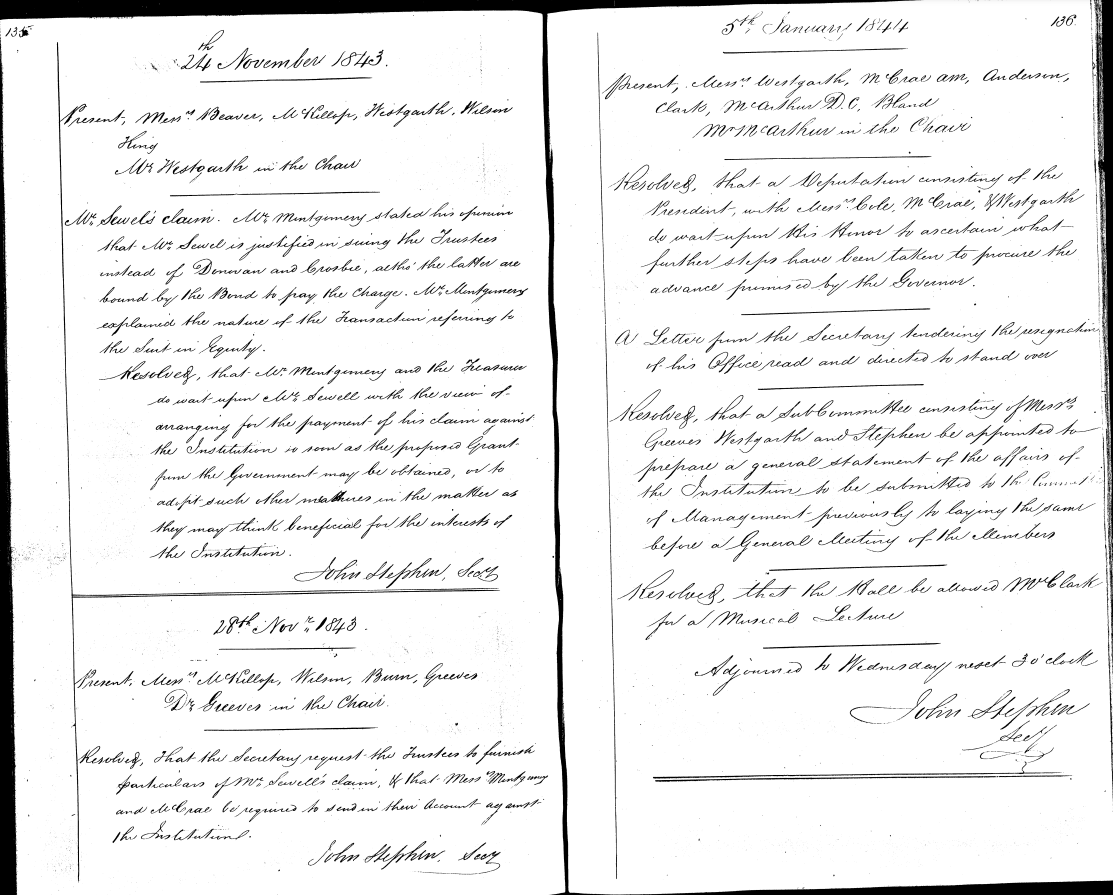 135
24th November 1843.
Present, Messrs Beaver, McKillop, Westgarth, Wilson
King
Mr Westgarth in the Chair
Mr Sewel's claim. Mr Montgomery stated his opinion
that Mr Sewel is justified in suing the Trustees
instead of Donovan and Crosbie, altho' the latter are
bound by the Bond to pay the Charge. Mr Montgomery
explained the nature of the Transaction referring to
the Suit in Equity.
Resolved, that Mr Montgomery and the Treasurer
do wait upon Mr Sewell with the view of
arranging for the payment of his claim against
the Institution so soon as the proposed Grant
from the Government may be obtained, or to
adopt such other measures in the matter as
they may think beneficial for the interests of
the Institution.
John Stephen, Secy
28th Novr 1843.
Present, Messrs McKillop, Wilson, Burn, Greeves
Dr Greeves in the Chair.
Resolved, That the Secretary request the Trustees to furnish
particulars of Mr Sewell's claim, & that Messrs Montgomery
and McCrae be required to send in their Account against
the Institution.
John Stephen, Secy
136
5th January 1844
Present, Messrs Westgarth, McCrae am, Anderson,
Clark, McArthur D.C, Bland
Mr McArthur in the Chair
Resolved, that a Deputation consisting of the
President, with Messrs Cole, McCrae, & Westgarth
do wait upon His Honor to ascertain what
further steps have been taken to procure the
advance promised by the Governor.
A Letter from the Secretary tendering the resignation
of his Office read and directed to stand over
Resolved, that a SubCommittee consisting of Messrs
Greeves Westgarth and Stephen be appointed to
prepare a general statement of the affairs of
the Institution to be submitted to the Committee
of Management previously to laying the same
before a General Meeting of the Members
Resolved, that the Hall be allowed Mr Clark
for a Musical Lecture
Adjourned to Wednesday next 3 o'clock
John Stephen
Secy